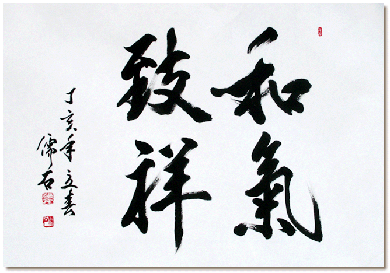 和氣
致祥
丁亥年立春
儒石